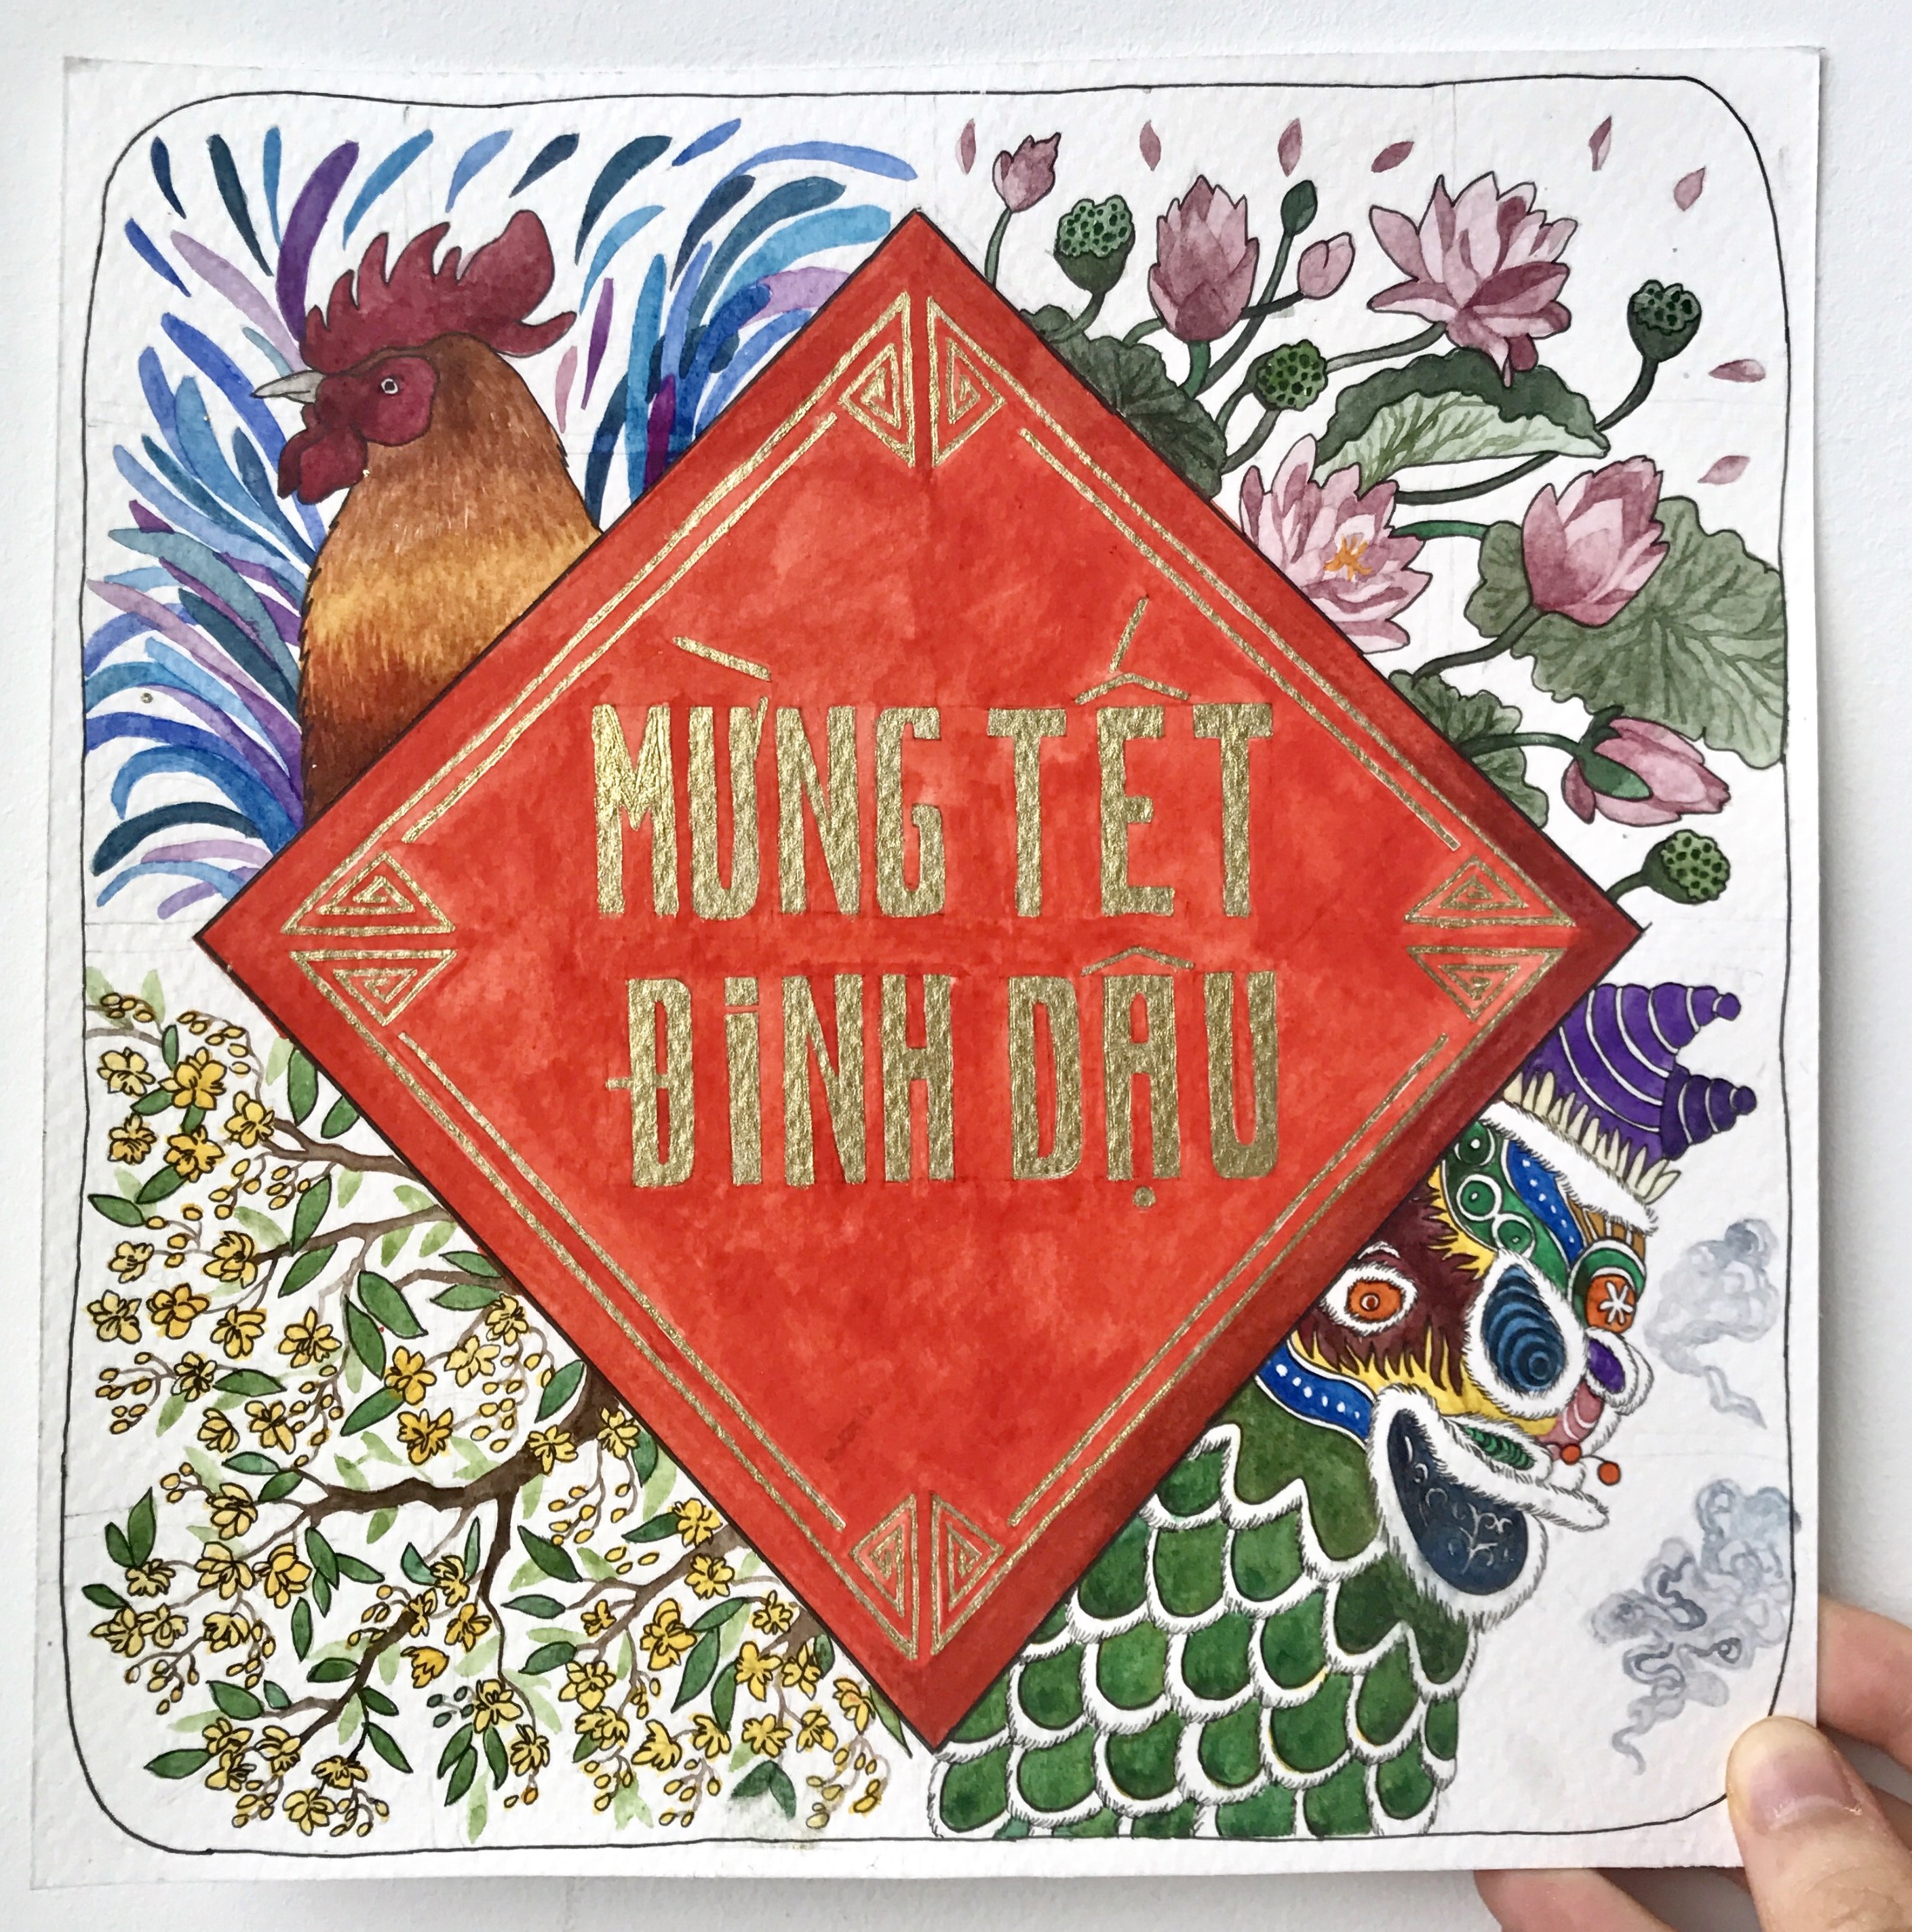 MỪNG TẾT
ĐINH DẬU